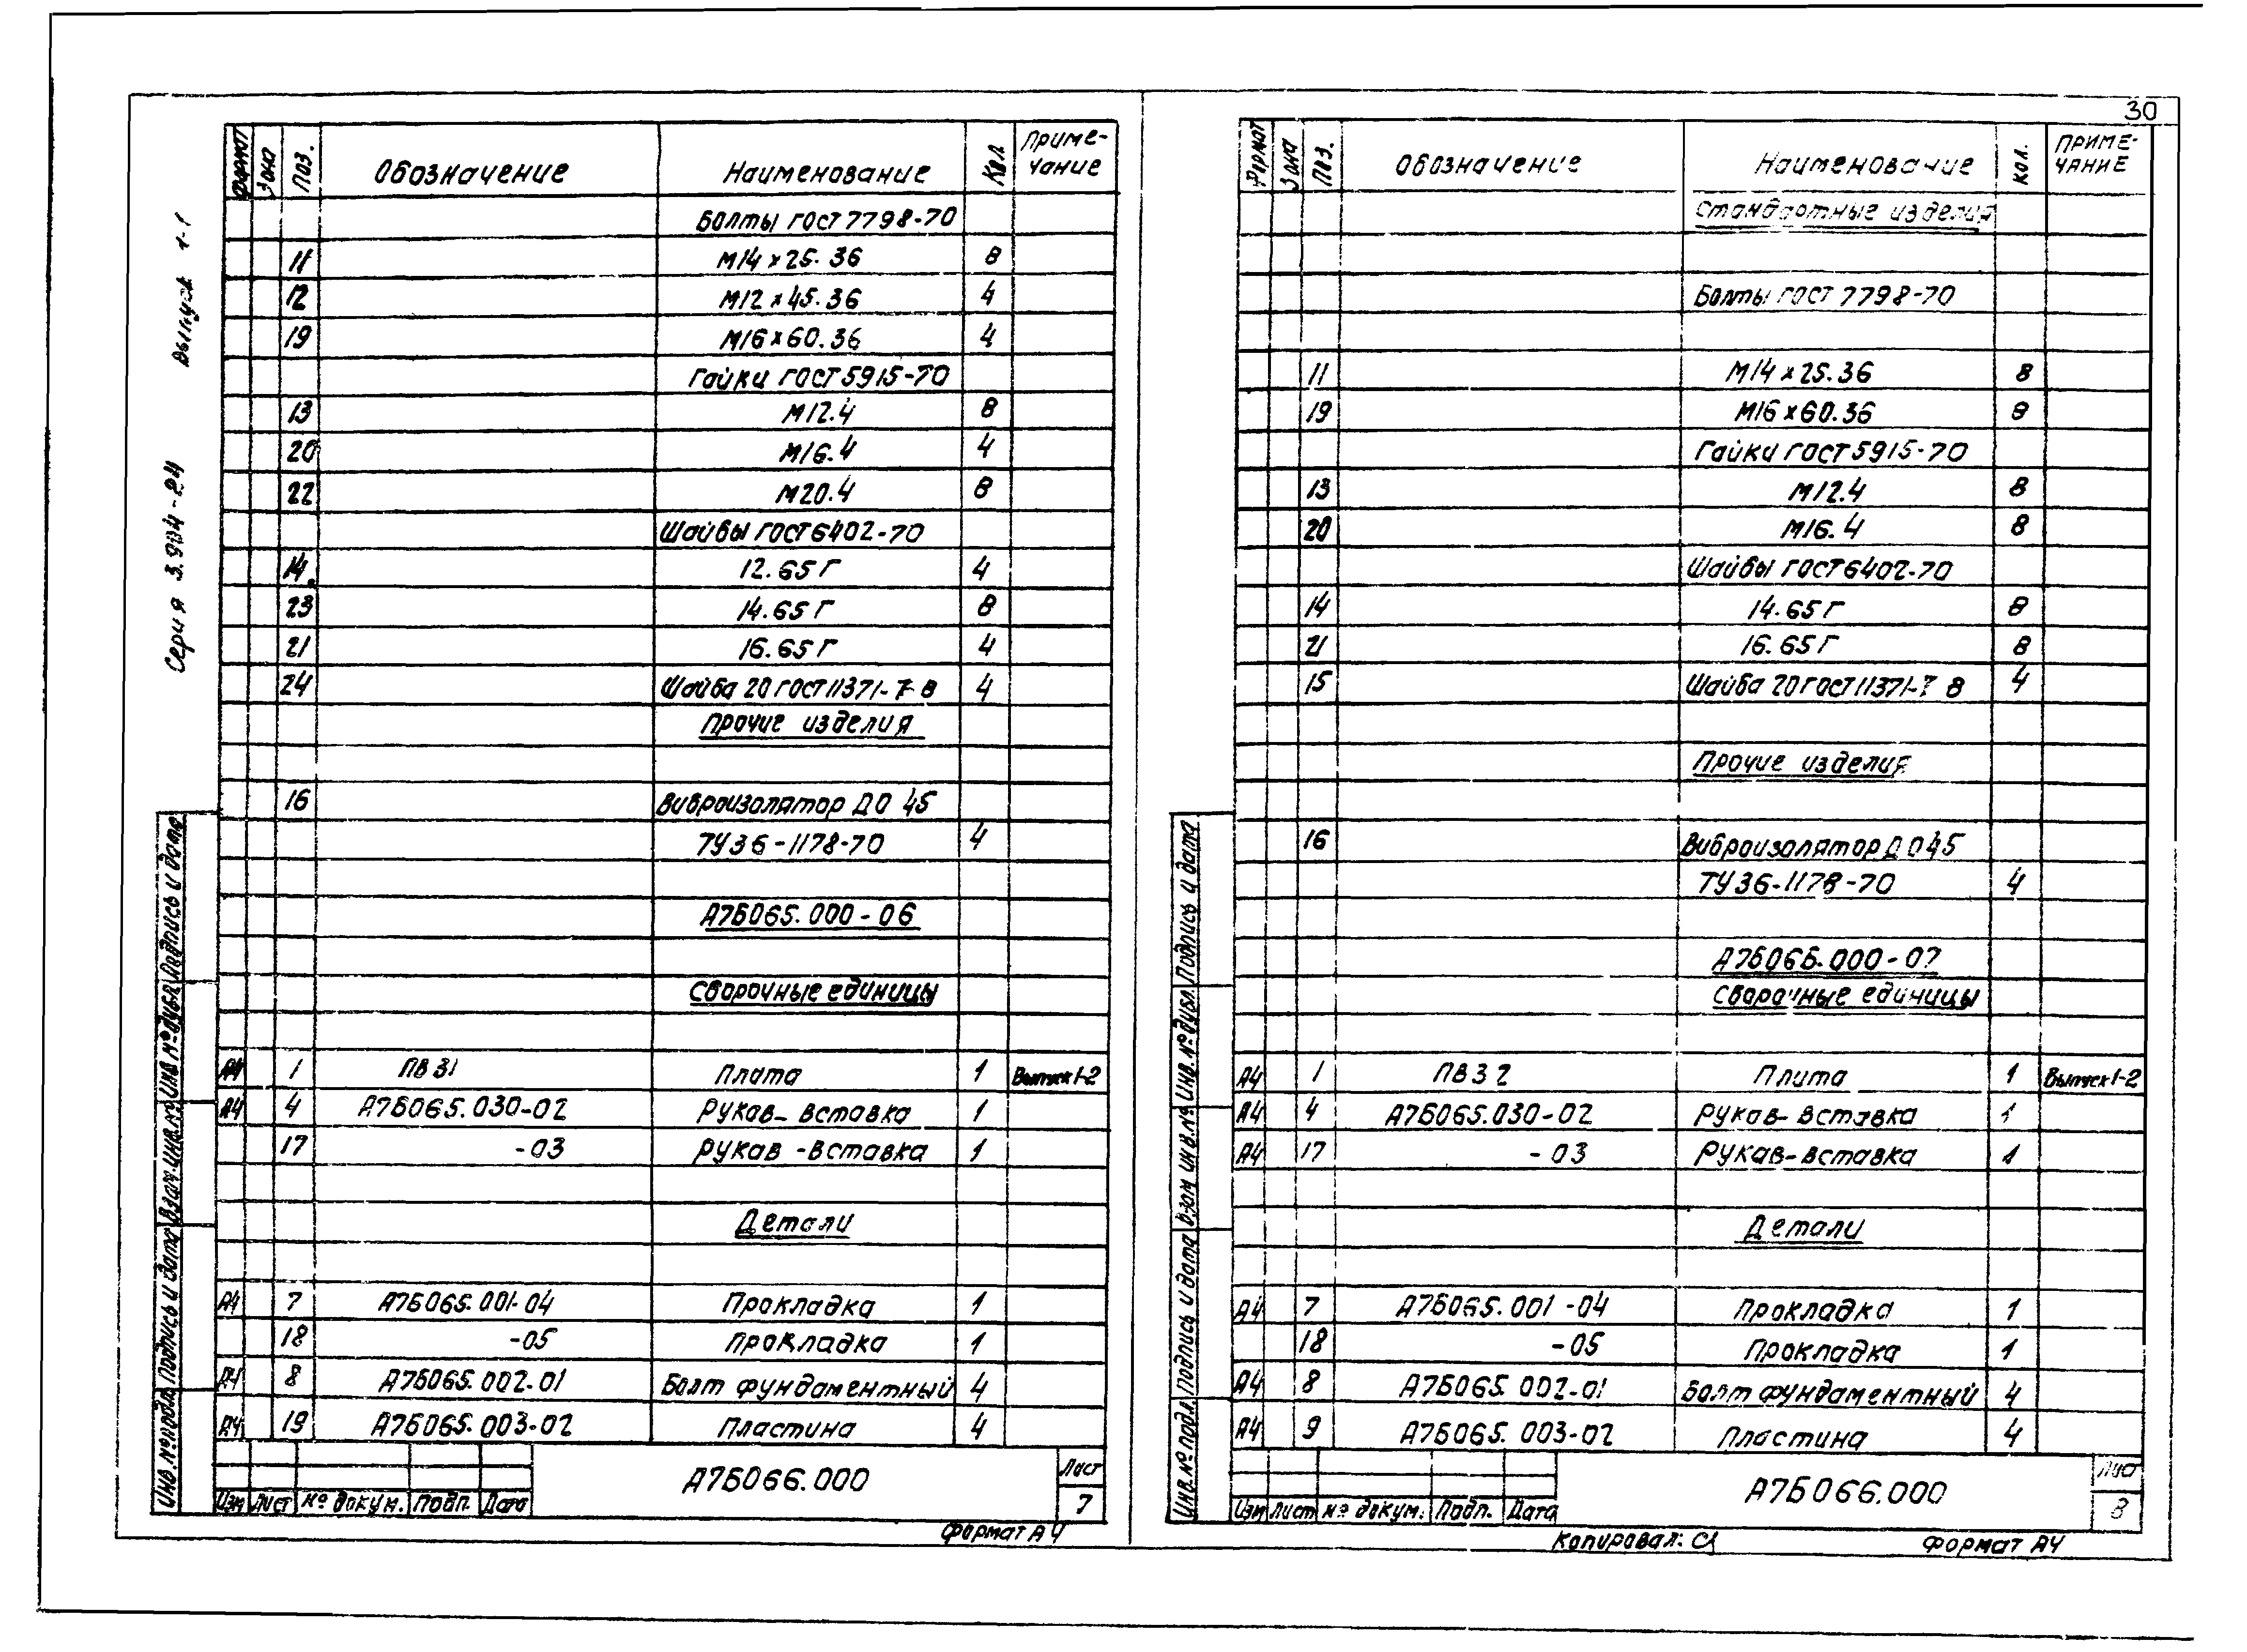 30
Серия 3.904-24 Выпуск 1-1
Формат Зона Поз. Обозначение Наименование Кол. Приме-чание
Болты ГОСТ 7798-70
11 М14х25.36 8
12 М12х45.36 4
19 М16х60.36 4
Гайки ГОСТ 5915-70
13 М12.4 8
20 М16.4 4
22 М20.4 8
Шайбы ГОСТ 6402-70
14. 12.65Г 4
23 14.65Г 8
21 16.65Г 4
24 Шайба 20 ГОСТ 11371-78 4
Прочие изделия
16 Виброизолятор ДО 45
ТУ36-1178-70 4
А7Б065.000-06
Сборочные единицы
А4 1 ПВ31 Плата 1 Выпуск 1-2
А4 4 А7Б065.030-02 Рукав-вставка 1
17 -03 Рукав-вставка 1
Детали
А4 7 А7Б065.001-04 Прокладка 1
18 -05 Прокладка 1
А4 8 А7Б065.002-01 Болт фундаментный 4
А4 19 А7Б065.003-02 Пластина 4
Инв.№подл. Подпись и дата Взам.инв.№ Инв.№дубл. Подпись и дата
Изм Лист № докум. Подп. Дата
А7Б066.000
Лист
7
Формат А4
Формат Зона Поз. Обозначение Наименование Кол. Приме-чание
Стандартные изделия
Болты ГОСТ 7798-70
11 М14х25.36 8
19 М16х60.36 8
Гайки ГОСТ 5915-70
13 М12.4 8
20 М16.4 8
Шайбы ГОСТ 6402-70
14 14.65Г 8
21 16.65Г 8
15 Шайба 20 ГОСТ 11371-78 4
Прочие изделия
16 Виброизолятор ДО45
ТУ36-1178-70 4
А7Б066.000-07
Сборочные единицы
А4 1 ПВ32 Плита 1 Выпуск 1-2
А4 4 А7Б065.030-02 Рукав-вставка 1
А4 17 -03 Рукав-вставка 1
Детали
А4 7 А7Б065.001-04 Прокладка 1
18 -05 Прокладка 1
А4 8 А7Б065.002-01 Болт фундаментный 4
А4 9 А7Б065.003-02 Пластина 4
Инв.№ подл. Подпись и дата Взам инв.№ Инв.№дубл. Подпись и дата
Изм Лист № докум. Подп. Дата
А7Б066.000
Лист
8
Копировал:
Формат А4